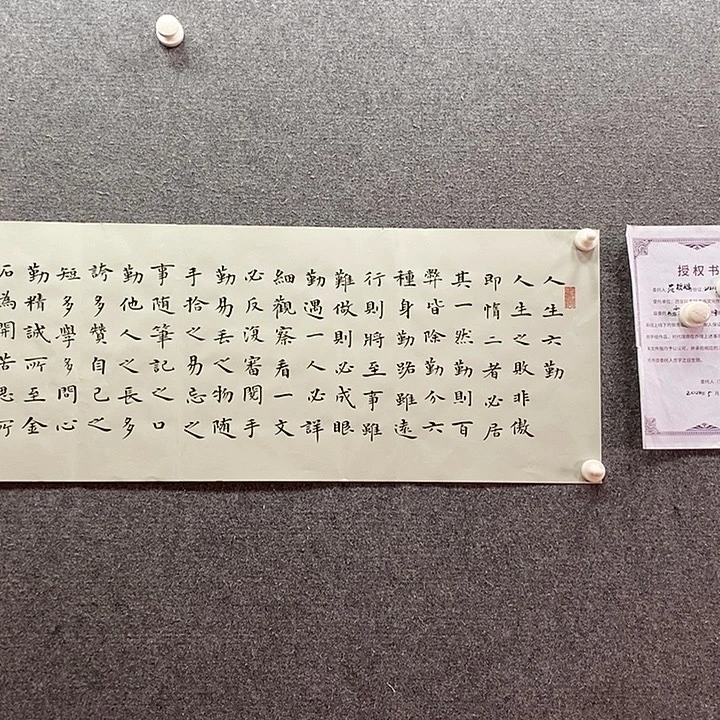 人生六勤
人生之敗非傲
即惰二者必居
其一然勤則百
弊皆除勤分六
種身勤路雖遠
行則將至事雖
難做則必成眼
勤遇一人必詳
細觀察看一文
必反復審閱手
勤易丟之物隨
手拾之易忘之
事隨筆記之口
勤他人之長多
誇多贊自己之
短多學多問心
勤精誠所至金
石為開苦思所
授权书
委托人